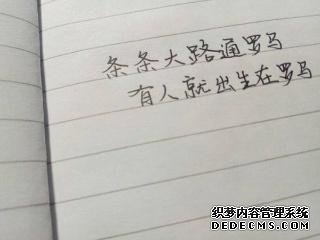 条条大路通罗马
有人就出生在罗马
织梦内容管理系统
DEDECMS.COM